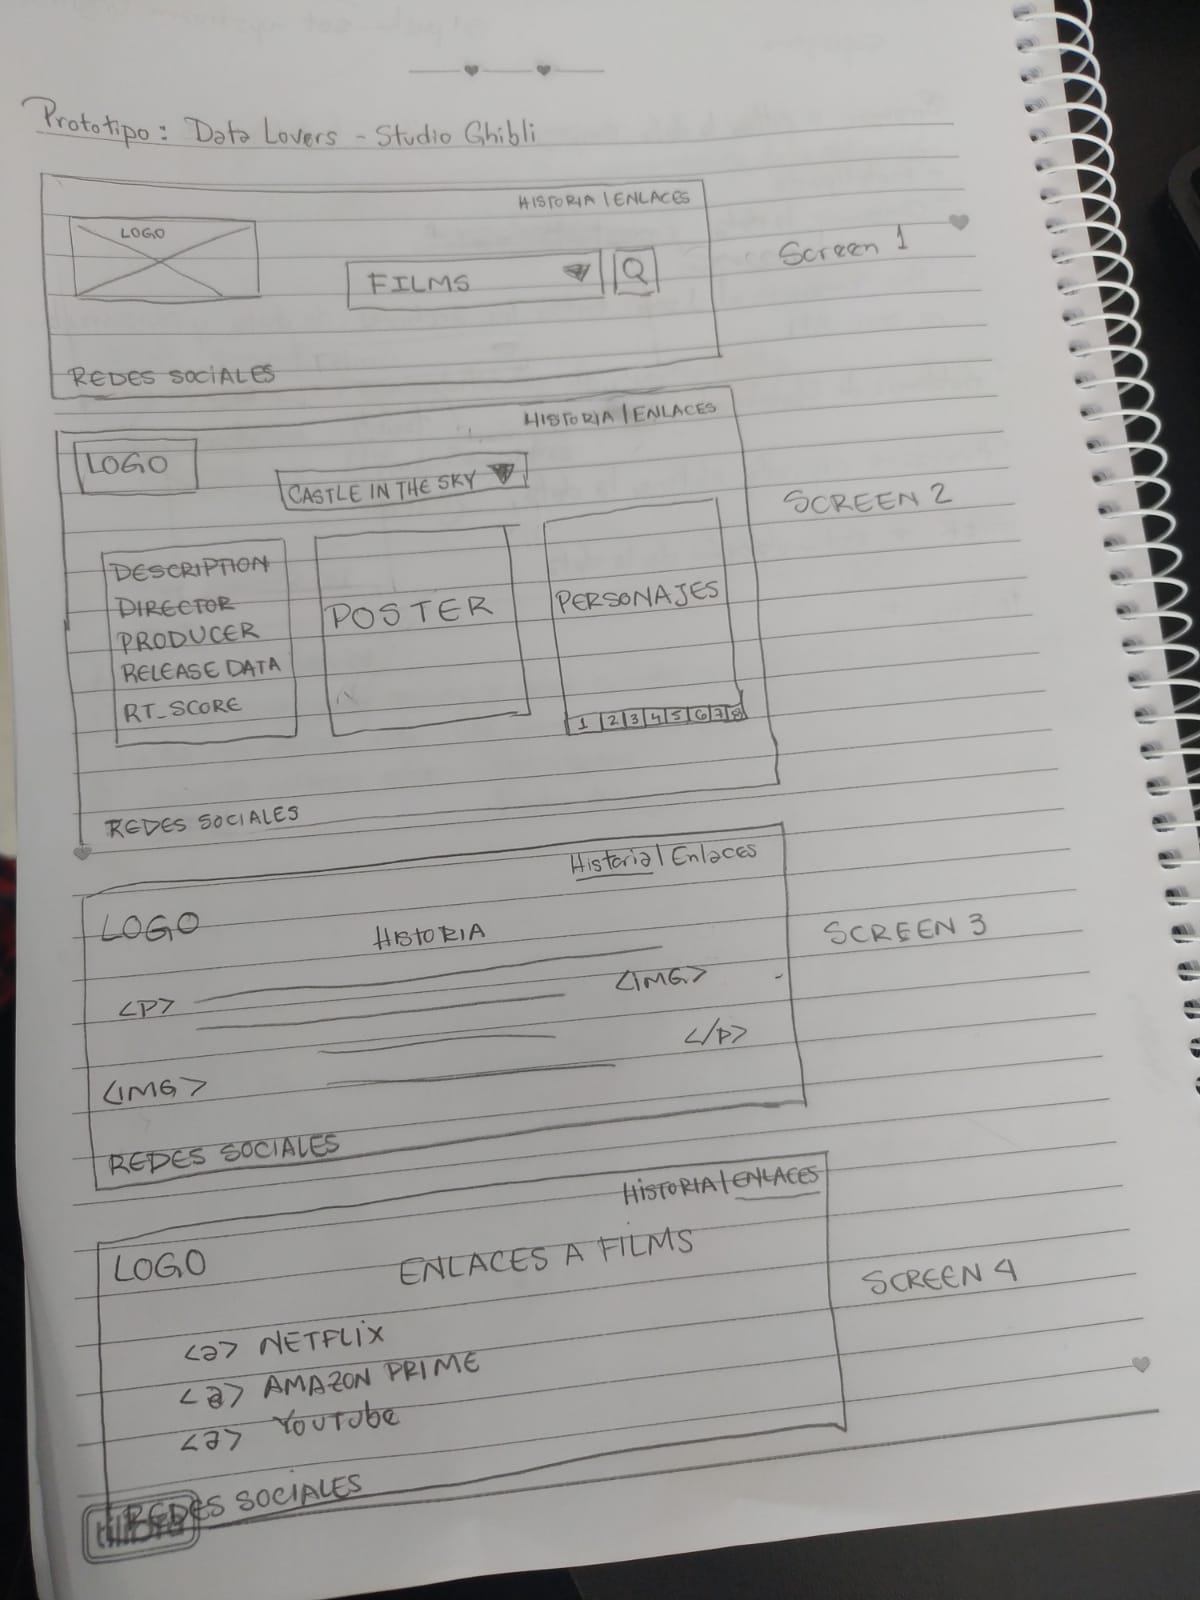 Prototipo: Data Lovers - Studio Ghibli
HISTORIA | ENLACES
LOGO
Screen 1
FILMS
REDES SOCIALES
HISTORIA | ENLACES
LOGO
CASTLE IN THE SKY
SCREEN 2
DESCRIPTION
DIRECTOR
PRODUCER
RELEASE DATA
RT_SCORE
POSTER
PERSONAJES
1 2 3 4 5 6 7 8
REDES SOCIALES
Historia | Enlaces
LOGO
HISTORIA
SCREEN 3
<P>
<IMG>
</P>
<IMG>
REDES SOCIALES
HISTORIA | ENLACES
LOGO
ENLACES A FILMS
SCREEN 4
<a> NETFLIX
<a> AMAZON PRIME
<a> YOUTUBE
REDES SOCIALES
tilibra